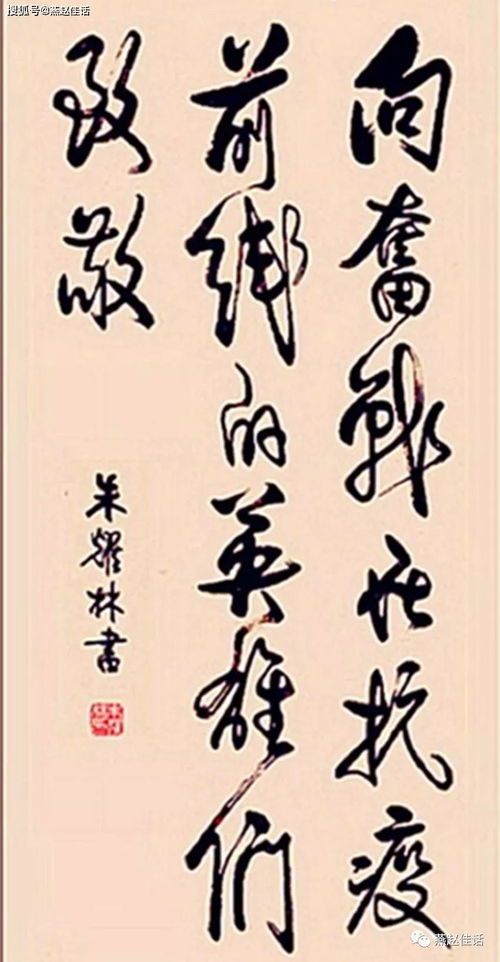 搜狐号@燕赵佳话
向奮戰在抗疫
前线的英雄们
致敬
朱耀林書
燕赵佳话